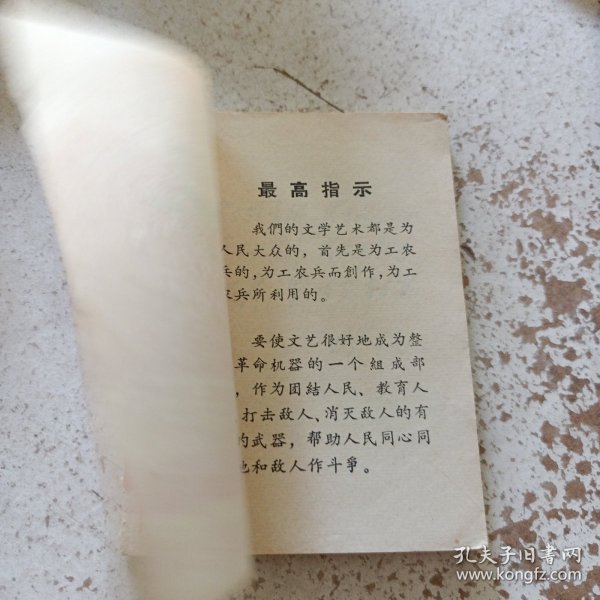 最高指示
我們的文学艺术都是为
人民大众的，首先是为工农
兵的，为工农兵而創作，为工
农兵所利用的。
要使文艺很好地成为整
革命机器的一个組成部
，作为团結人民、教育人
打击敌人、消灭敌人的有
的武器，帮助人民同心同
地和敌人作斗爭。
孔夫子旧書网
www.kongfz.com